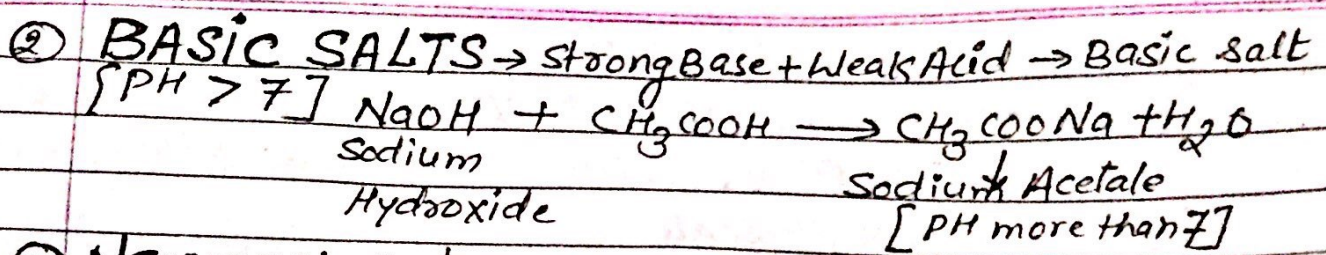 ② BASIC SALTS → Strong Base + Weak Acid → Basic salt
[PH > 7] NaOH + CH₃COOH → CH₃COONa + H₂O
Sodium Sodium Acetale
Hydroxide [PH more than 7]